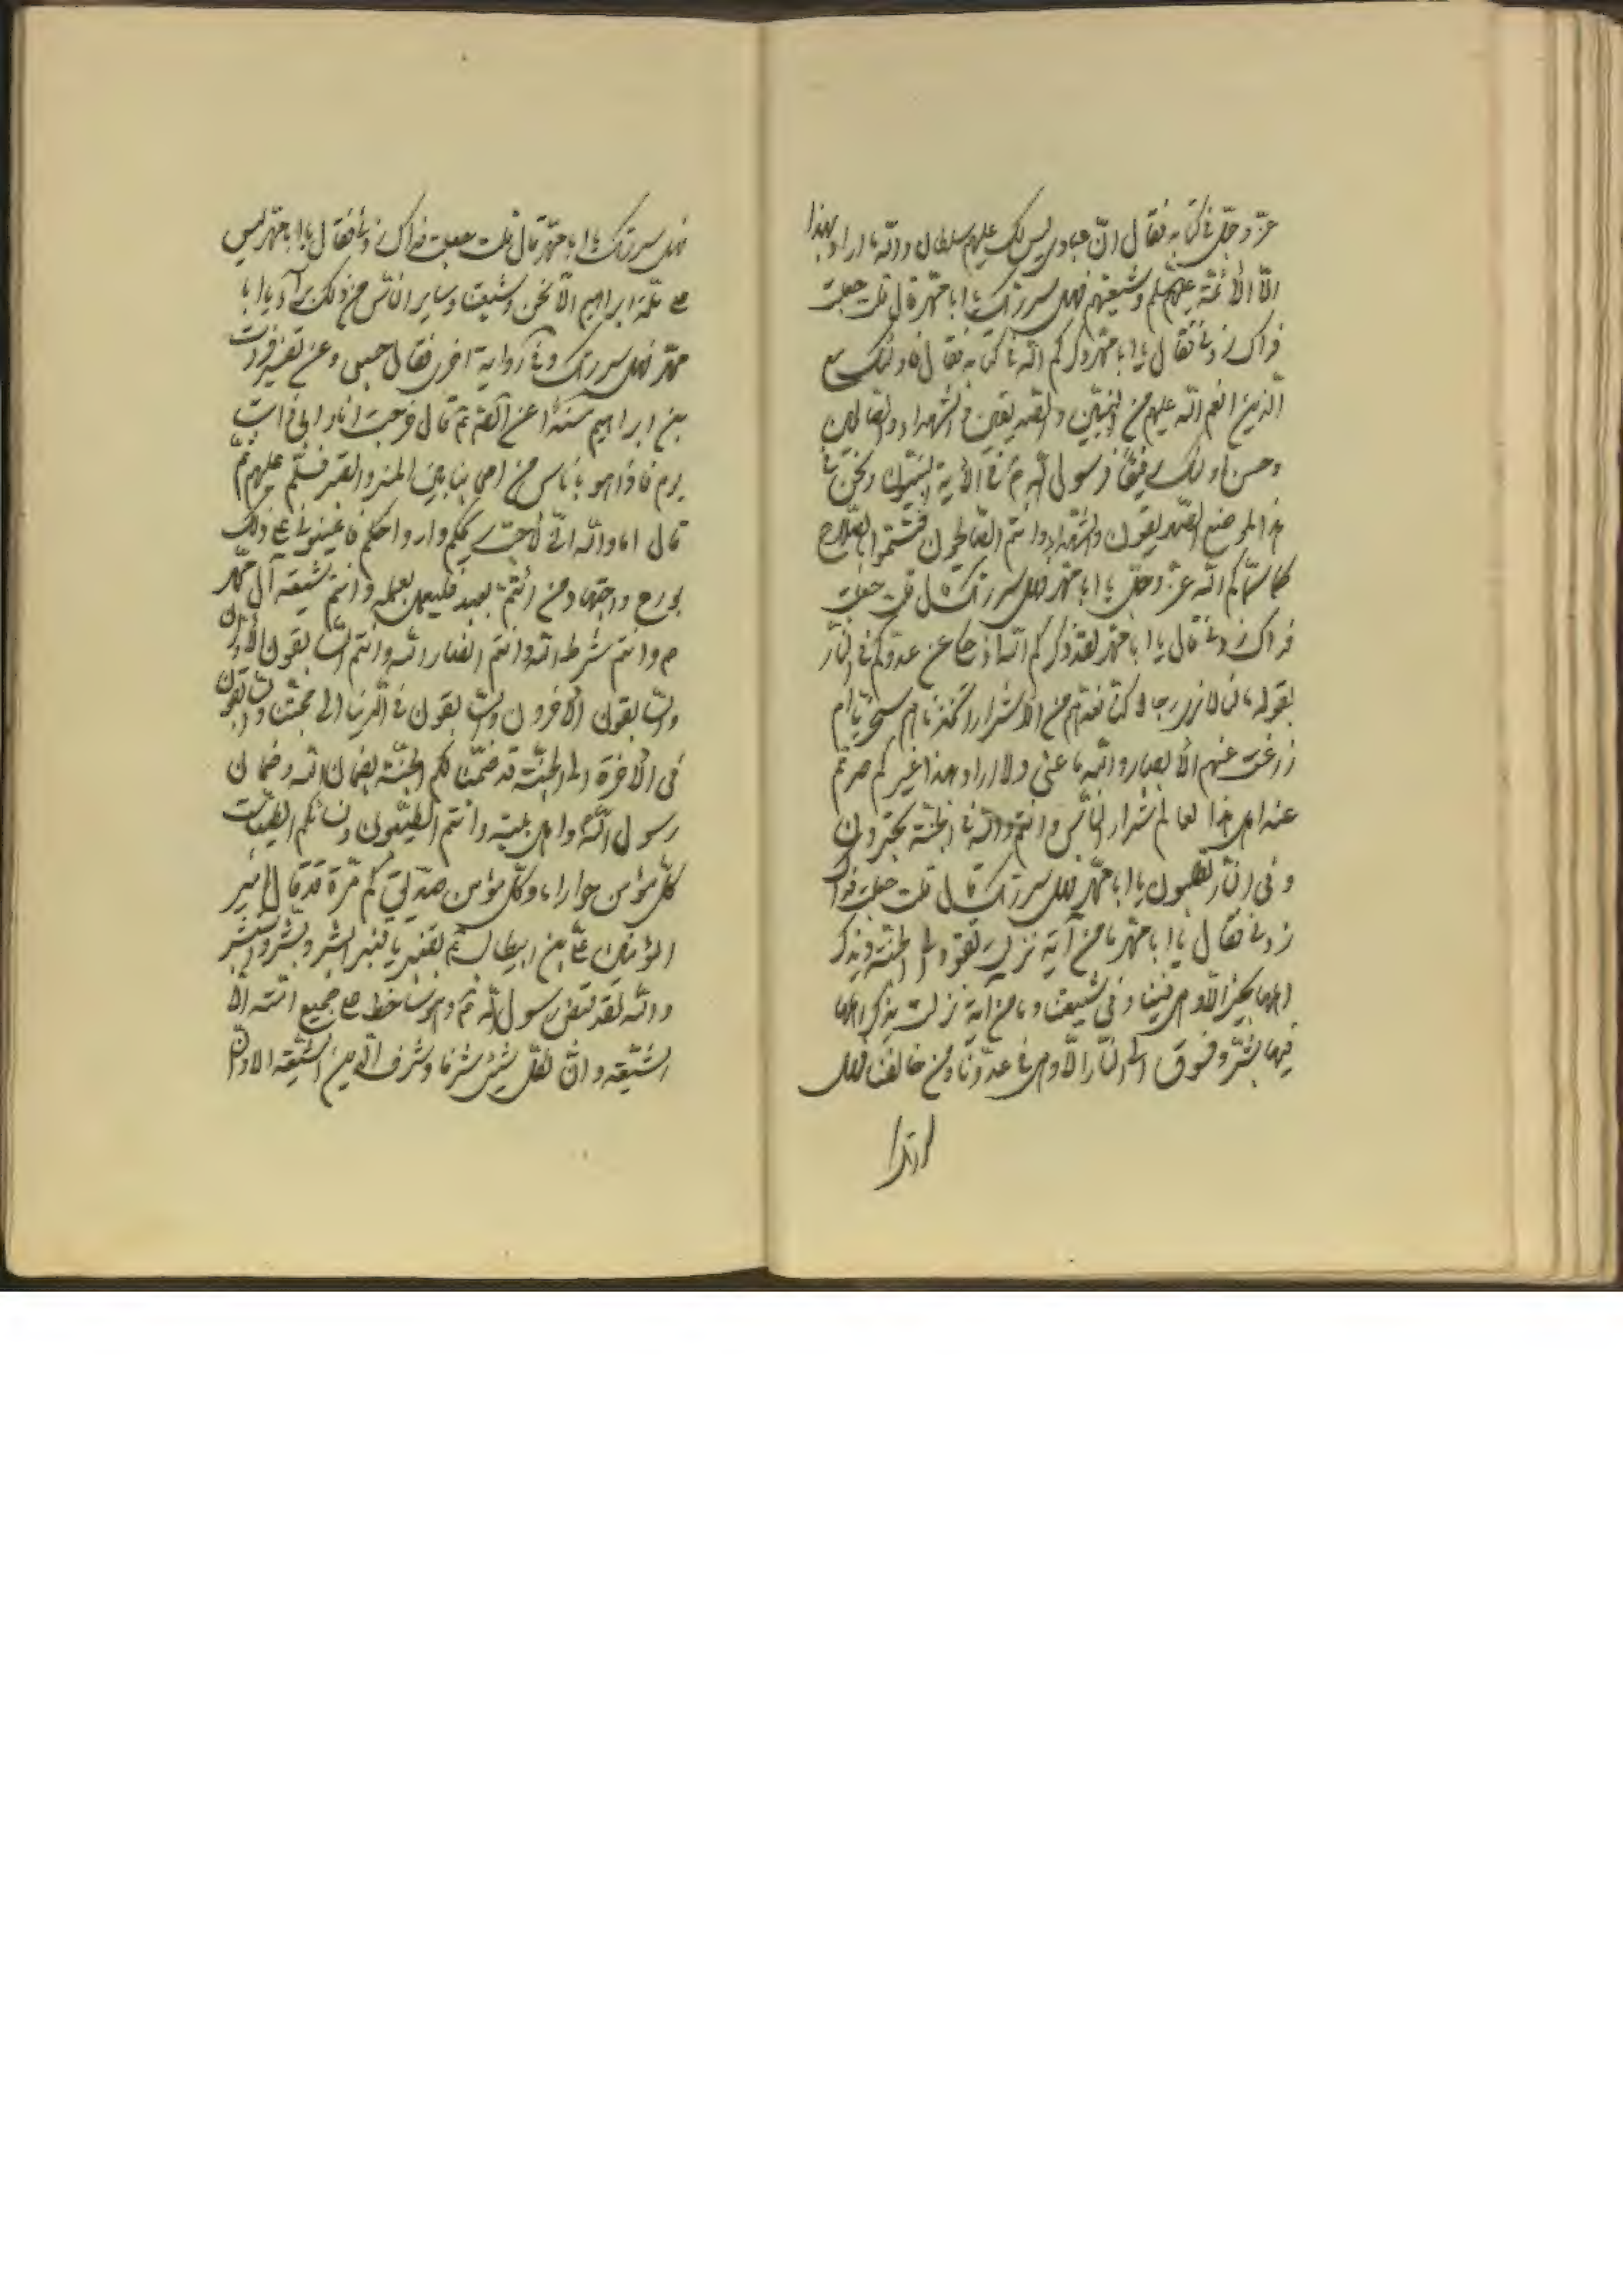 عزّ و جلّ في كتابه فقال انّ عبادي ليس لك عليهم سلطان والله ما اراد بهذا
الّا الأئمّة عليهم السلم و شيعتهم فهل سررتك يا ابا محمّد قال قلت جعلت
فداك زدني فقال يا ابا محمّد ذكركم الله في كتابه فقال فاولئك مع
الّذين انعم الله عليهم من النبيّين والصّديقين والشهداء والصّالحين
وحسن اولئك رفيقًا فرسول الله ص في الآية النبيّون ونحن في
هذا الموضع الصّديقون والشّهداء وانتم الصّالحون فتسّموا بالصّلاح
كما سمّاكم الله عزّ وجلّ يا ابا محمّد فهل سررتك قال قلت جعلت
فداك زدني قال يا ابا محمّد لقد ذكركم الله اذ حكى عن عدوّكم في النّار
بقوله ما لنا لا نرى رجالا كنّا نعدّهم من الاشرار اتّخذناهم سخريّا ام
زاغت عنهم الأبصار والله ما عنى ولا اراد بهذا غيركم صرتم
عند اهل هذا العالم شرار النّاس وانتم والله في الجنّة تحبرون
وفي النّار تطلبون يا ابا محمّد فهل سررتك قال قلت جعلت فداك
زدني فقال يا ابا محمّد ما من آية نزلت تقود الى الجنّة ويذكر
اهلها بخير الّا وهي فينا وفي شيعتنا وما من آية نزلت يذكر اهلها
فيها بشرّ وتسوق الى النّار الّا وهي في عدوّنا ومن خالفنا فهل
سررتك
فهل سررتك يا ابا محمّد قال قلت جعلت فداك زدني فقال يا ابا محمّد ليس
على ملّة ابراهيم الّا نحن وشيعتنا وساير النّاس من ذلك برآء يا ابا
محمّد فهل سررتك وفي رواية اخرى فقال حسبي وعن تفسير فرات
بن ابراهيم مسندًا عن الصّادق ع قال خرجت انا وابي ذات
يوم فاذا هو باناس من اصحابنا بين المنبر والقبر فسلّم عليهم ثمّ
قال اما والله انّي لأحبّ ريحكم وارواحكم فاعينوني على ذلك
بورع واجتهاد من ائتمّ بعبد فليعمل بعمله وانتم شيعة آل محمّد
ص وانتم شرطة الله وانتم انصار الله وانتم السّابقون الأوّلون
والسّابقون الآخرون والسّابقون في الدّنيا الى محبّتنا والسّابقون
في الآخرة الى الجنّة قد ضمنّا لكم الجنّة بضمان الله وضمان
رسول الله ص واهل بيته وانتم الطيّبون ونساؤكم الطيّبات
كلّ مؤمنة حوراء وكلّ مؤمن صدّيق كم مرّة قد قال امير
المؤمنين عليّ بن ابيطالب ع لقنبر يا قنبر ابشر وبشّر واستبشر
والله لقد قبض رسول الله ص وهو ساخط على جميع امّته الّا
الشّيعة وانّ لكلّ شيئ شرفا وشرف الّدين الشّيعة الا وانّ